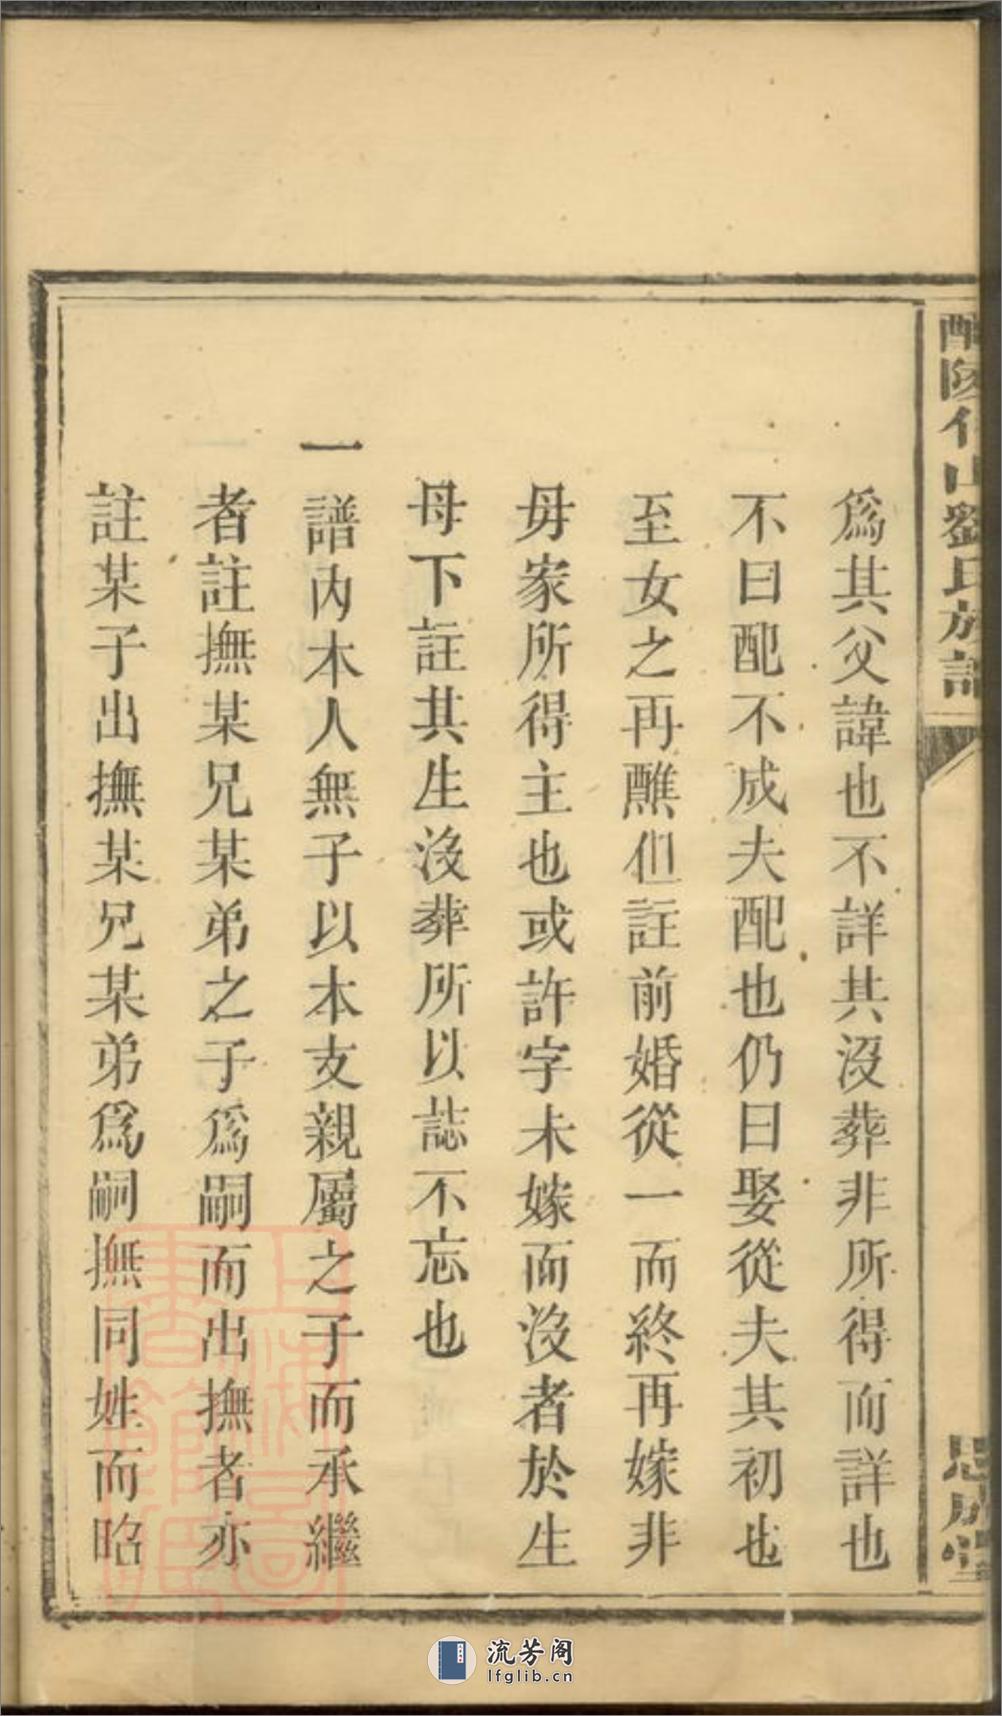 醴陵仆山劉氏族譜
思成堂
爲其父諱也不詳其沒葬非所得而詳也
不曰配不成夫配也仍曰娶從夫其初也
至女之再醮但註前婚從一而終再嫁非
毋家所得主也或許字未嫁而沒者於生
母下註其生沒葬所以誌不忘也
一譜內本人無子以本支親屬之子而承繼
者註撫某兄某弟之子爲嗣而出撫者亦
註某子出撫某兄某弟爲嗣撫同姓而昭
上海圖書館藏
流芳阁
lfglib.cn